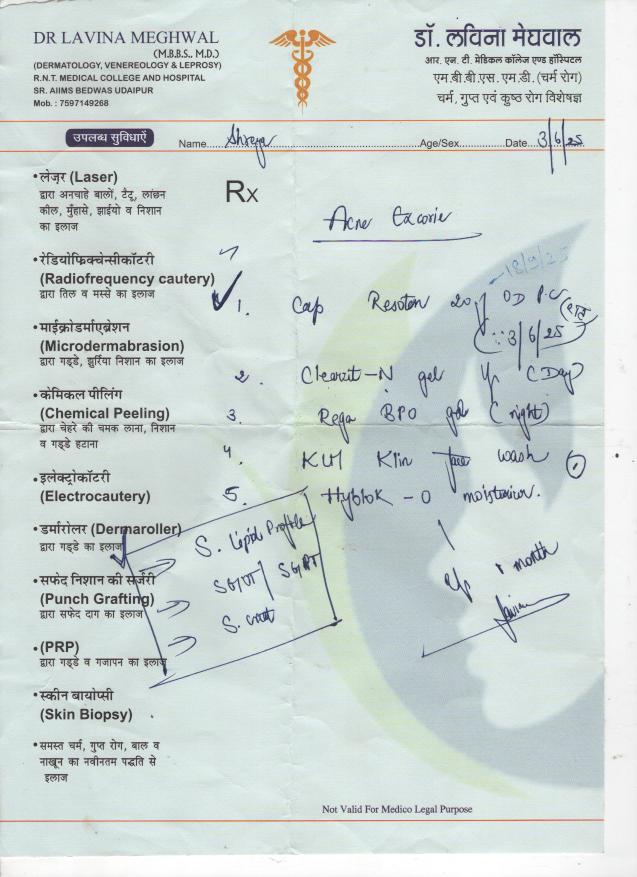 DR LAVINA MEGHWAL
(M.B.B.S.. M.D.)
(DERMATOLOGY, VENEREOLOGY & LEPROSY)
R.N.T. MEDICAL COLLEGE AND HOSPITAL
SR. AIIMS BEDWAS UDAIPUR
Mob. : 7597149268
डॉ. लविना मेघवाल
आर. एन. टी. मेडिकल कॉलेज एण्ड हॉस्पिटल
एम.बी.बी.एस. एम.डी. (चर्म रोग)
चर्म, गुप्त एवं कुष्ठ रोग विशेषज्ञ
उपलब्ध सुविधाऐं
Name Shreya Age/Sex Date 3/6/25
•लेज़र (Laser)
द्वारा अनचाहे बालों, टैटू, लांछन
कील, मुँहासे, झाईयो व निशान
का इलाज
•रेडियोफ्रिक्वेन्सीकॉटरी
(Radiofrequency cautery)
द्वारा तिल व मस्से का इलाज
•माईक्रोडर्माएब्रेशन
(Microdermabrasion)
द्वारा गड्डे, झुर्रिया निशान का इलाज
•केमिकल पीलिंग
(Chemical Peeling)
द्वारा चेहरे की चमक लाना, निशान
व गड्डे हटाना
•इलेक्ट्रोकॉटरी
(Electrocautery)
•डर्मारोलर (Dermaroller)
द्वारा गड्डे का इलाज
•सफेद निशान की सर्जरी
(Punch Grafting)
द्वारा सफेद दाग का इलाज
•(PRP)
द्वारा गड्डे व गजापन का इलाज
•स्कीन बायोप्सी
(Skin Biopsy)
• समस्त चर्म, गुप्त रोग, बाल व
नाखून का नवीनतम पद्धति से
इलाज
Rx
Acne Excorie
18/9/25
1. Cap 20 OD P.C
3/6/25
2. Clearzit-N gel (Day)
3. Rega BPO gel (night)
4. KUI Klin face wash
5. Hyblok - O
S. Lipid Profile
SGOT / SGPT
S.
month
Not Valid For Medico Legal Purpose